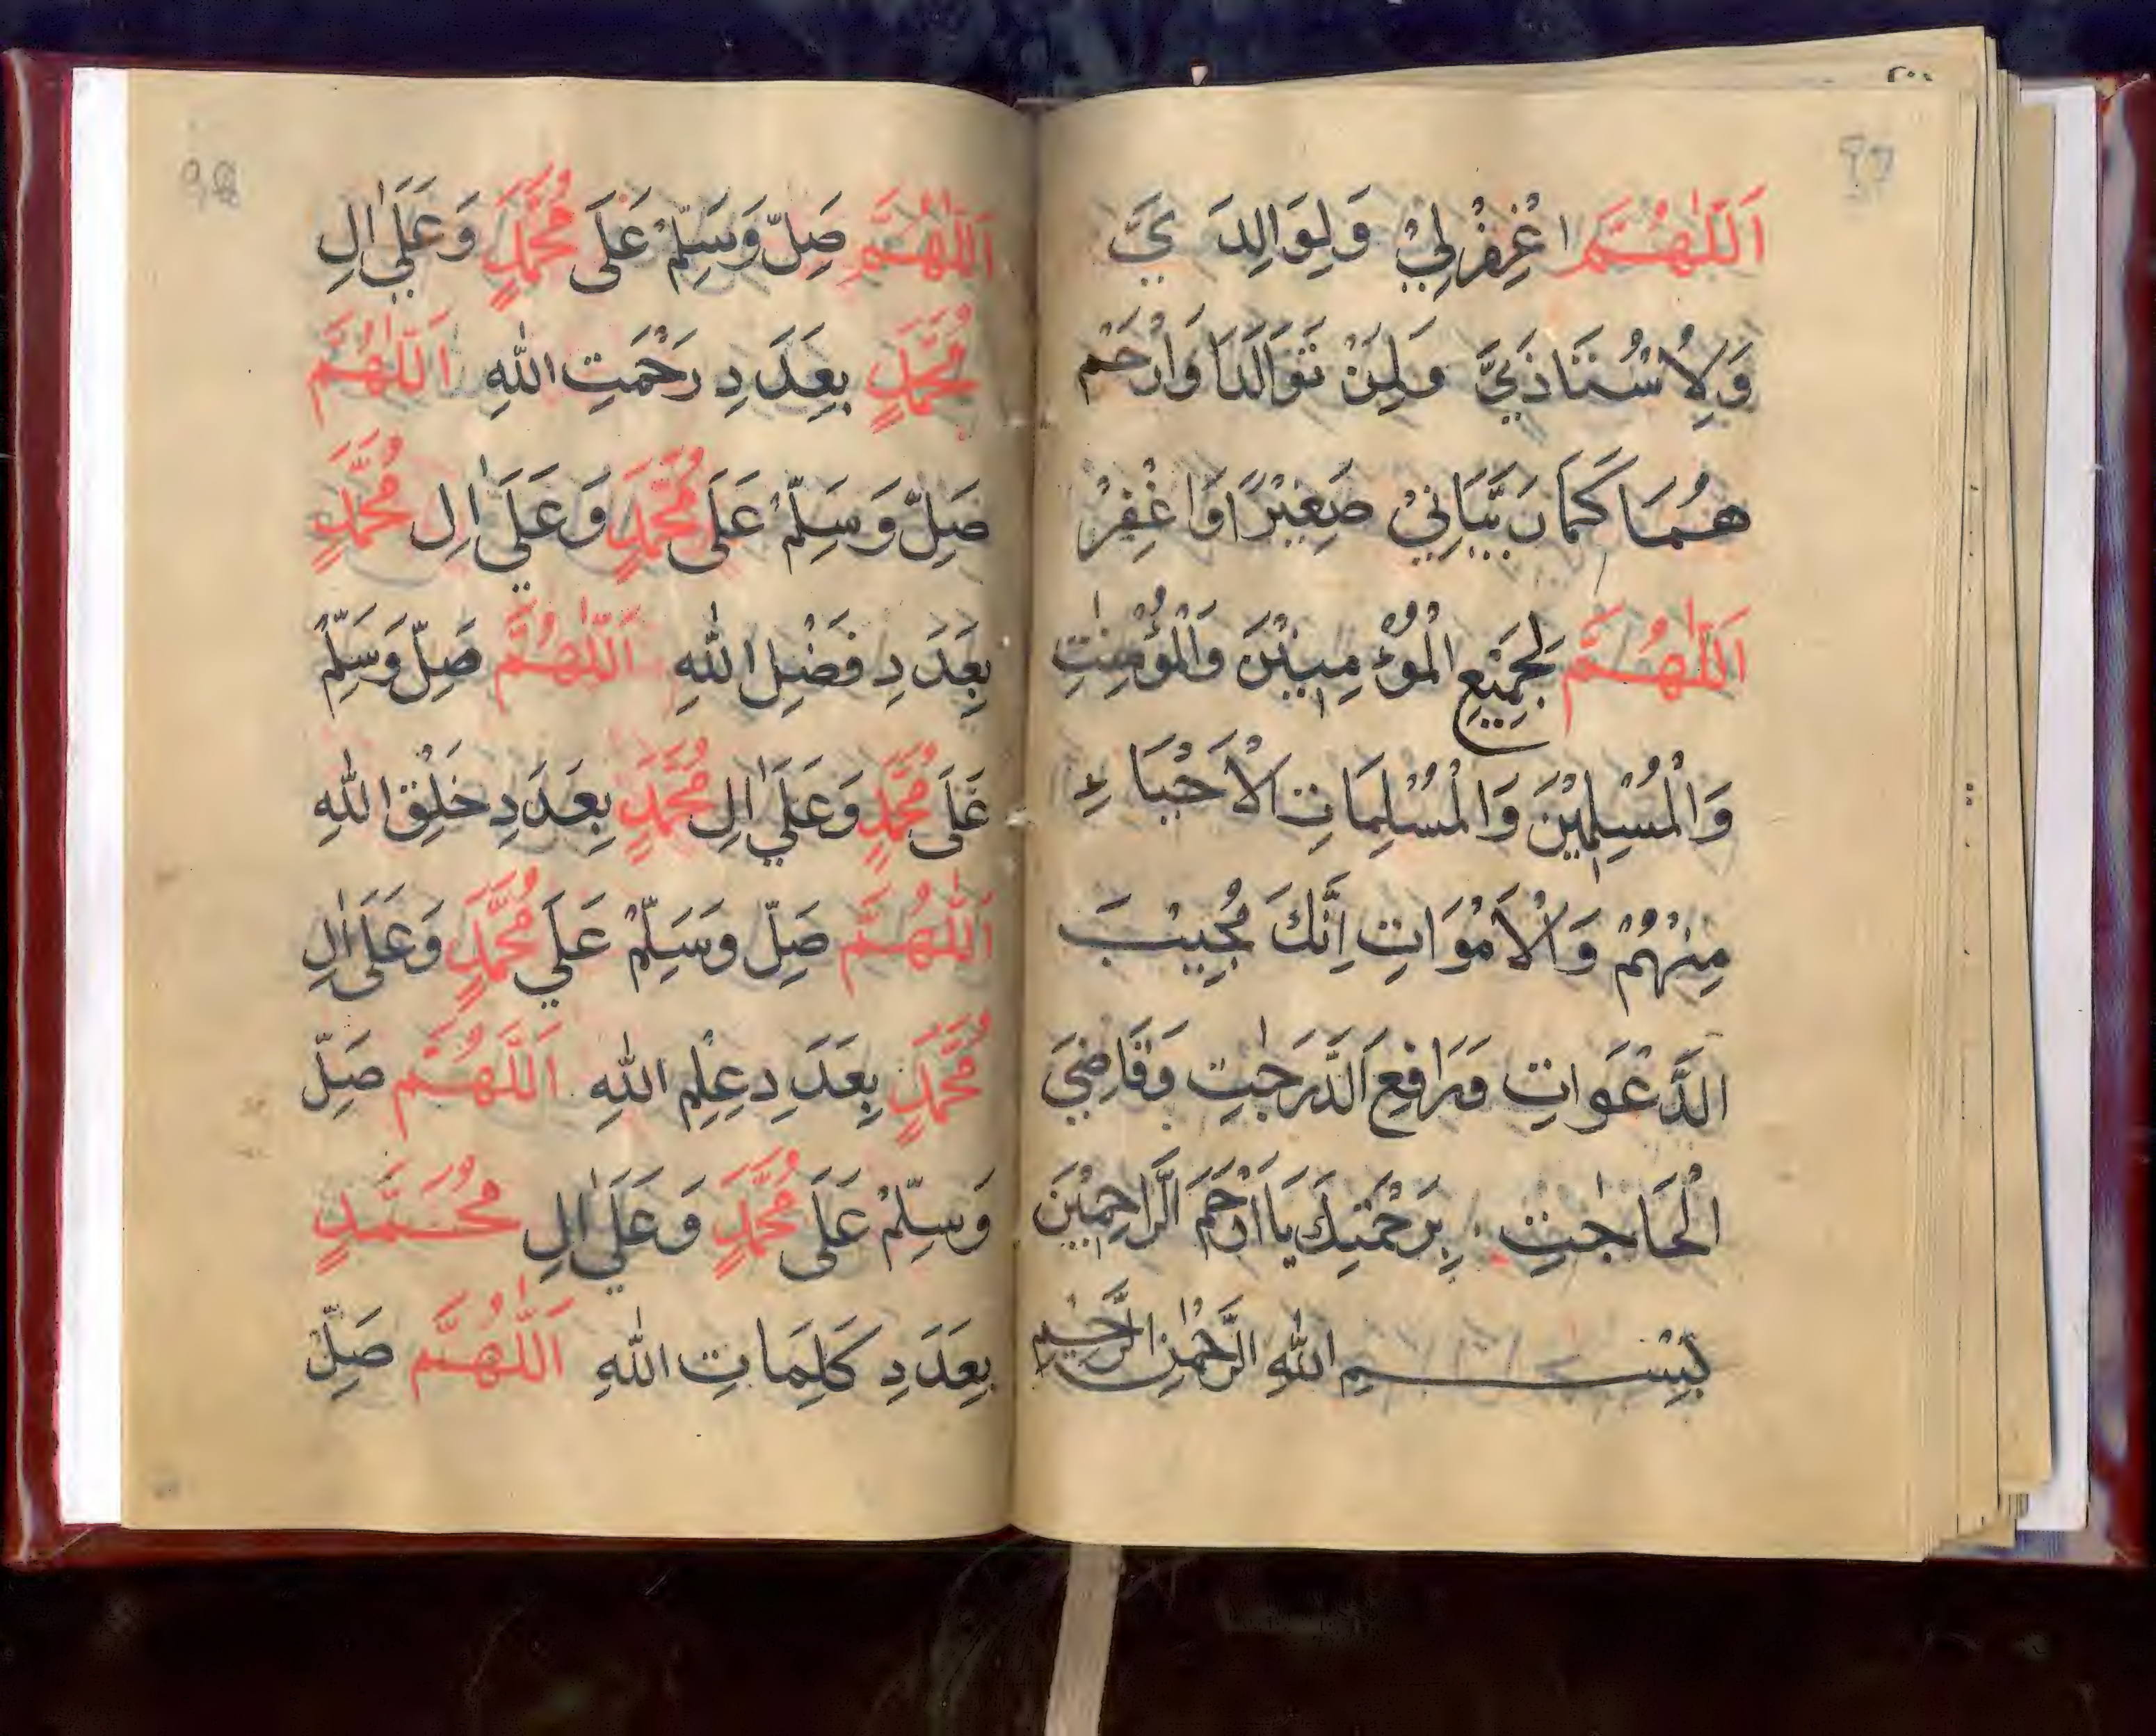 اَللّٰهُمَّ اغْفِرْلِيْ وَلِوَالِدَيَّ
وَلِاُسْتَاذَيَّ وَلِمَنْ تَوَالَدَا وَارْحَمْ
هُمَا كَمَا رَبَّيَانِيْ صَغِيْرًا وَاغْفِرْ
اَللّٰهُمَّ لِجَمِيْعِ الْمُؤْمِنِيْنَ وَالْمُؤْمِنٰتِ
وَالْمُسْلِمِيْنَ وَالْمُسْلِمَاتِ الْاَحْيَاءِ
مِنْهُمْ وَالْاَمْوَاتِ اِنَّكَ مُجِيْبَ
الدَّعَوَاتِ وَرَافِعَ الدَّرَجٰتِ وَقَاضِيَ
الْحَاجٰتِ بِرَحْمَتِكَ يَا اَرْحَمَ الرَّاحِمِيْنَ
بِسْمِ اللّٰهِ الرَّحْمٰنِ الرَّحِيْمِ
اَللّٰهُمَّ صَلِّ وَسَلِّمْ عَلَى مُحَمَّدٍ وَعَلَي اٰلِ
مُحَمَّدٍ بِعَدَدِ رَحْمَتِ اللّٰهِ اَللّٰهُمَّ
صَلِّ وَسَلِّمْ عَلَى مُحَمَّدٍ وَعَلَي اٰلِ مُحَمَّدٍ
بِعَدَدِ فَضْلِ اللّٰهِ اَللّٰهُمَّ صَلِّ وَسَلِّمْ
عَلَى مُحَمَّدٍ وَعَلَي اٰلِ مُحَمَّدٍ بِعَدَدِ خَلْقِ اللّٰهِ
اَللّٰهُمَّ صَلِّ وَسَلِّمْ عَلَي مُحَمَّدٍ وَعَلَى اٰلِ
مُحَمَّدٍ بِعَدَدِ عِلْمِ اللّٰهِ اَللّٰهُمَّ صَلِّ
وَسَلِّمْ عَلَى مُحَمَّدٍ وَعَلَي اٰلِ مُحَمَّدٍ
بِعَدَدِ كَلِمَاتِ اللّٰهِ اَللّٰهُمَّ صَلِّ